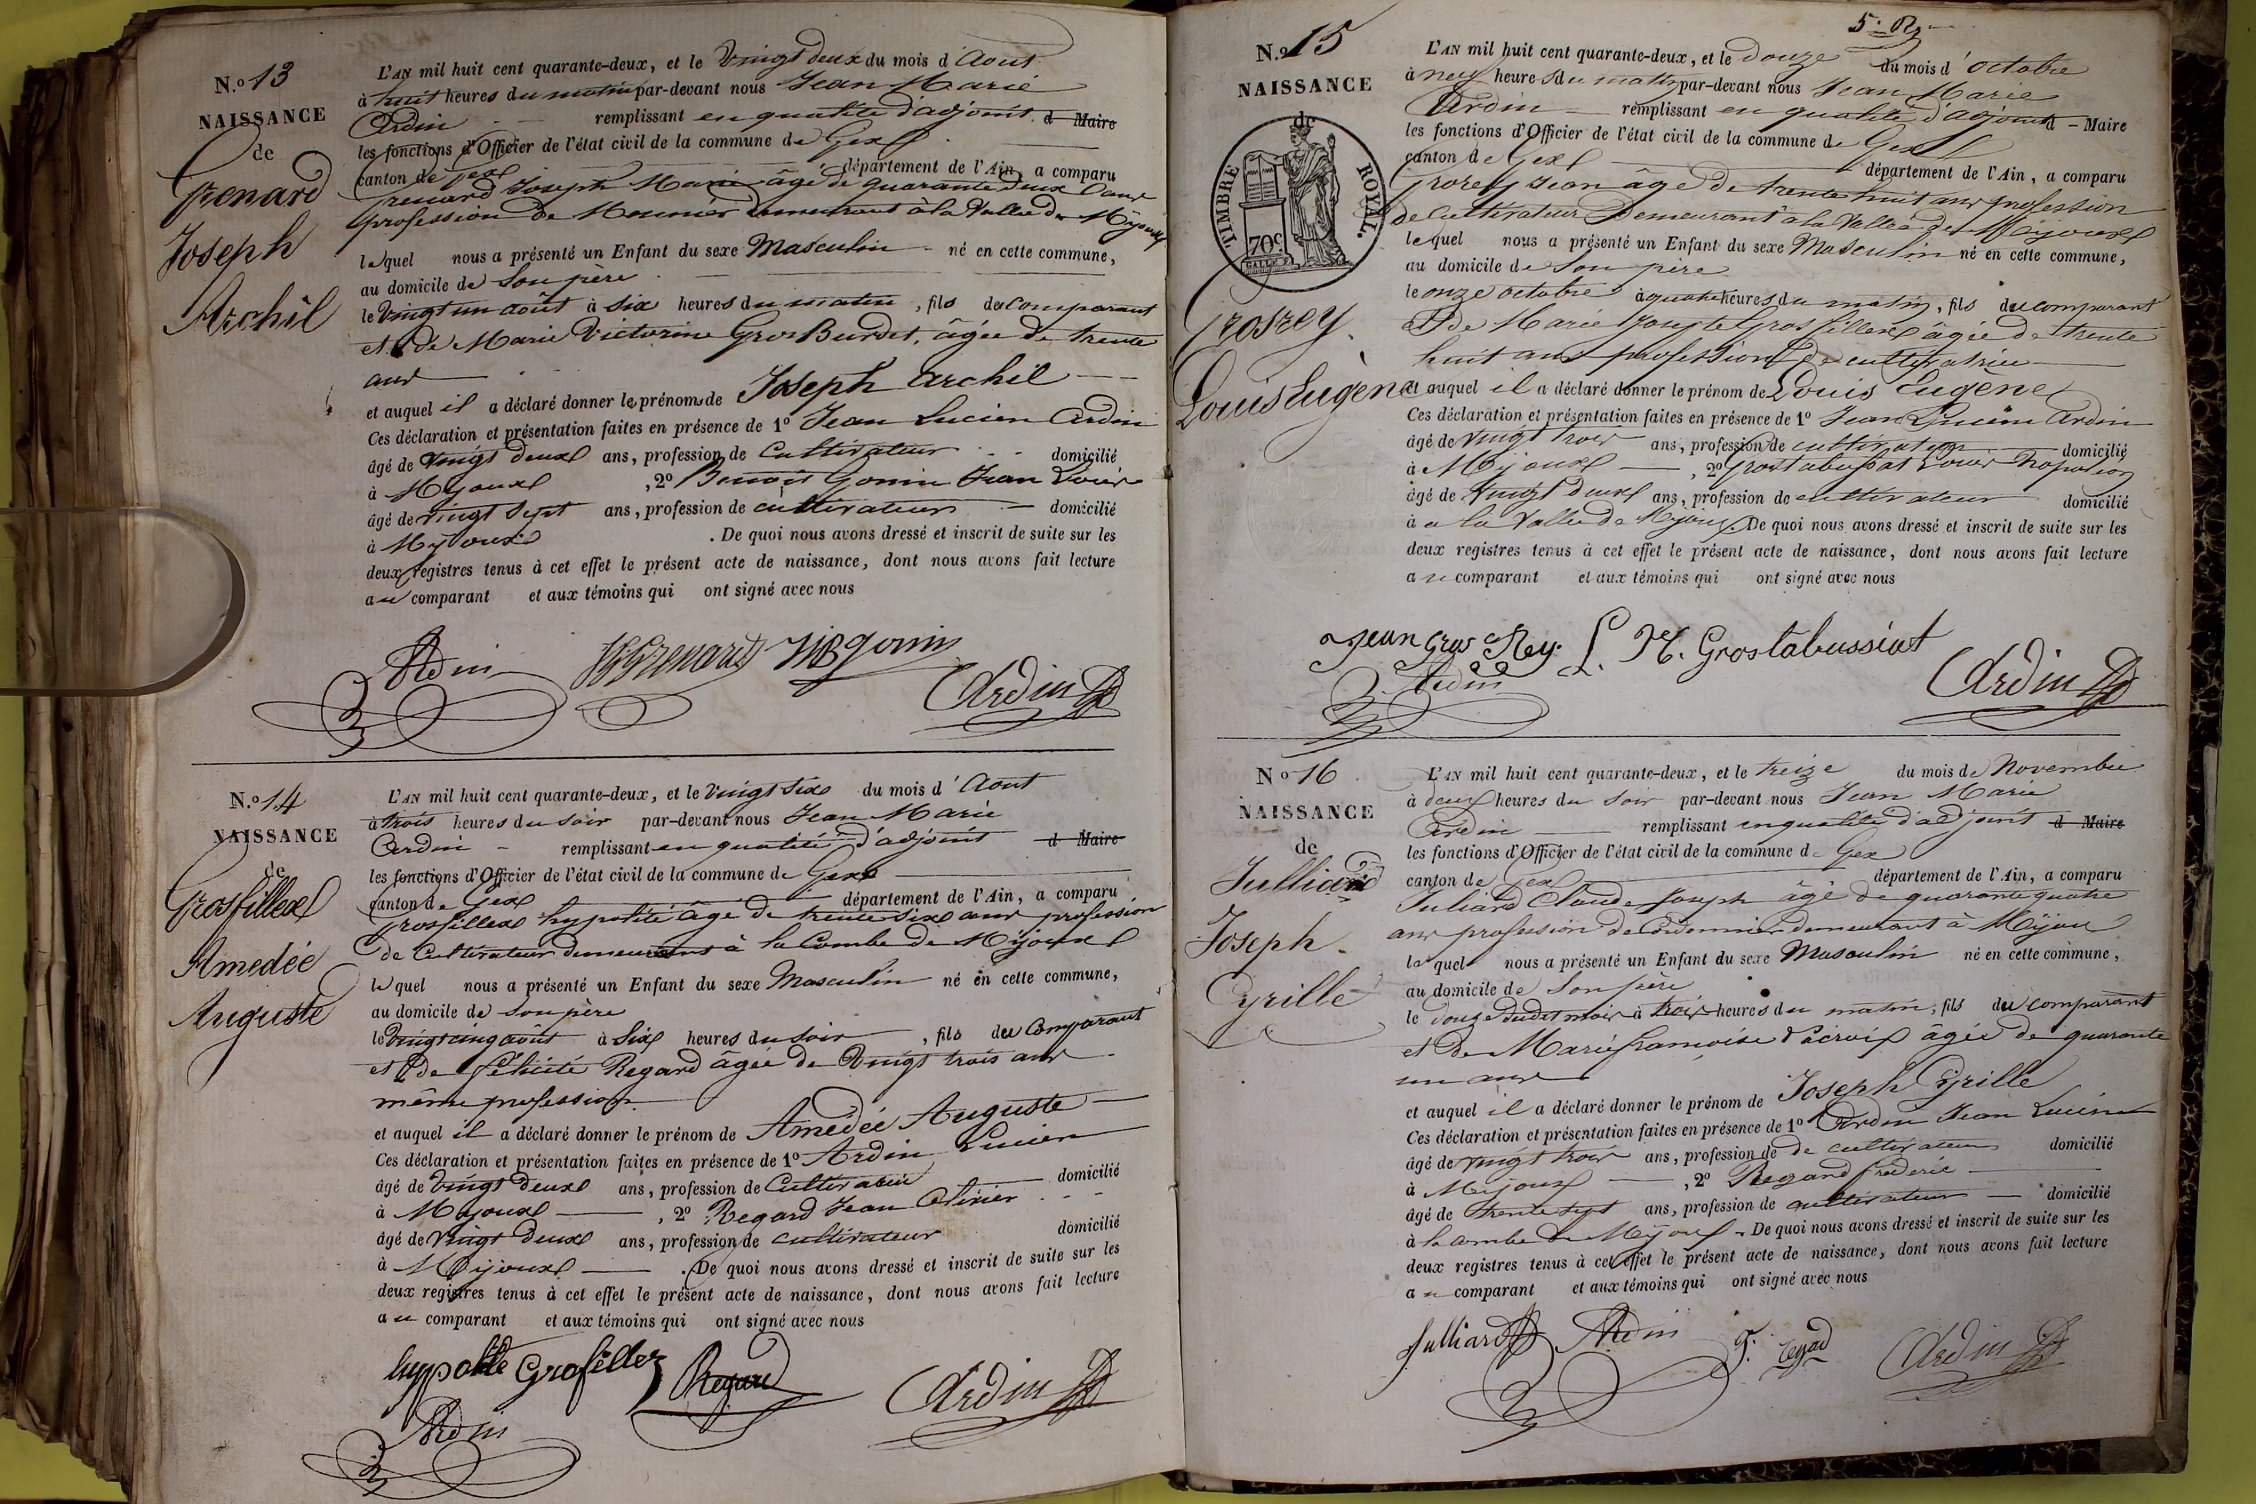 N.º 13
NAISSANCE
de
Grenard
Joseph
Archil
L'AN mil huit cent quarante-deux, et le Vingt deux du mois d'Aout
à huit heures du matin par-devant nous Jean Marie
Ardin remplissant en qualité d'adjoint d Maire
les fonctions d'Officier de l'état civil de la commune de Gex
canton de Gex département de l'Ain, a comparu
Grenard Joseph Marie âgé de quarante deux ans
profession de Meunier demeurant à la Vallée de Mijoux
lequel nous a présenté un Enfant du sexe Masculin né en cette commune,
au domicile de Son père
le Vingt un août à six heures du matin, fils du comparant
et de Marie Victorine Gros Burdet, âgée de trente
ans
et auquel il a déclaré donner le prénom de Joseph Archil
Ces déclaration et présentation faites en présence de 1º Jean Lucien Ardin
âgé de Vingt deux ans, profession de Cultivateur domicilié
à Mijoux, 2º Benoit Gonin Jean Louis
âgé de vingt sept ans, profession de cultivateur domicilié
à Mijoux. De quoi nous avons dressé et inscrit de suite sur les
deux registres tenus à cet effet le présent acte de naissance, dont nous avons fait lecture
au comparant et aux témoins qui ont signé avec nous
Ardin Grenard Gonin
Ardin
N.º 14
NAISSANCE
de
Grosfillex
Amedée
Auguste
L'AN mil huit cent quarante-deux, et le Vingt six du mois d'Aout
à trois heures du soir par-devant nous Jean Marie
Ardin remplissant en qualité d'adjoint d Maire
les fonctions d'Officier de l'état civil de la commune de Gex
canton de Gex département de l'Ain, a comparu
Grosfillex hypolite âgé de trente six ans profession
de Cultivateur demeurant à la Combe de Mijoux
lequel nous a présenté un Enfant du sexe Masculin né en cette commune,
au domicile de son père
le Vingt cinq août à Six heures du Soir, fils du Comparant
et de Félicité Regard âgée de Vingt trois ans
même profession
et auquel il a déclaré donner le prénom de Amedée Auguste
Ces déclaration et présentation faites en présence de 1º Ardin Lucien
âgé de Vingt deux ans, profession de Cultivateur domicilié
à Mijoux, 2º Regard Jean Olivier
âgé de Vingt Deux ans, profession de cultivateur domicilié
à Mijoux. De quoi nous avons dressé et inscrit de suite sur les
deux registres tenus à cet effet le présent acte de naissance, dont nous avons fait lecture
au comparant et aux témoins qui ont signé avec nous
hyppolite Grosfillex Regard Ardin
Ardin
N.º 15
NAISSANCE
de
TIMBRE ROYAL.
70c
Grosrey
Louis Eugène
L'AN mil huit cent quarante-deux, et le douze du mois d'octobre
à neuf heures du matin par-devant nous Jean Marie
Ardin remplissant en qualité d'adjoint d Maire
les fonctions d'Officier de l'état civil de la commune de Gex
canton de Gex département de l'Ain, a comparu
Grorey Jean âgé de trente huit ans profession
de Cultivateur Demeurant à la Vallée de Mijoux
lequel nous a présenté un Enfant du sexe Masculin né en cette commune,
au domicile de Son père
le onze octobre à quatre heures du matin, fils du comparant
et de Marie Josepte Gros fillex âgée de trente
huit ans profession de cultivatrice
et auquel il a déclaré donner le prénom de Louis Eugene
Ces déclaration et présentation faites en présence de 1º Jean Lucien Ardin
âgé de vingt trois ans, profession de cultivateur domicilié
à Mijoux, 2º Grostabussiat Louis
âgé de Vingt deux ans, profession de cultivateur domicilié
à a la Vallée de Mijoux. De quoi nous avons dressé et inscrit de suite sur les
deux registres tenus à cet effet le présent acte de naissance, dont nous avons fait lecture
au comparant et aux témoins qui ont signé avec nous
Jean Gros Rey. L. N. Grostabussiat
Ardin Ardin
Nº 16
NAISSANCE
de
Julliard
Joseph
Cyrille
L'AN mil huit cent quarante-deux, et le treize du mois de Novembre
à deux heures du soir par-devant nous Jean Marie
Ardin remplissant en qualité d'adjoint d Maire
les fonctions d'Officier de l'état civil de la commune de Gex
canton de Gex département de l'Ain, a comparu
Juliard Claude Joseph âgé de quarante quatre
ans profession de Cordonnier demeurant à Mijoux
lequel nous a présenté un Enfant du sexe Masculin né en cette commune,
au domicile de Son père
le douze dudit mois à trois heures du matin, fils du comparant
et de Marie françoise Lacroix âgée de quarante
un ans
et auquel il a déclaré donner le prénom de Joseph Cyrille
Ces déclaration et présentation faites en présence de 1º Ardin Jean Lucien
âgé de vingt trois ans, profession de de cultivateur domicilié
à Mijoux, 2º Regard frederic
âgé de trente sept ans, profession de cultivateur domicilié
à la combe de Mijoux. De quoi nous avons dressé et inscrit de suite sur les
deux registres tenus à cet effet le présent acte de naissance, dont nous avons fait lecture
au comparant et aux témoins qui ont signé avec nous
Julliard Ardin Ardin